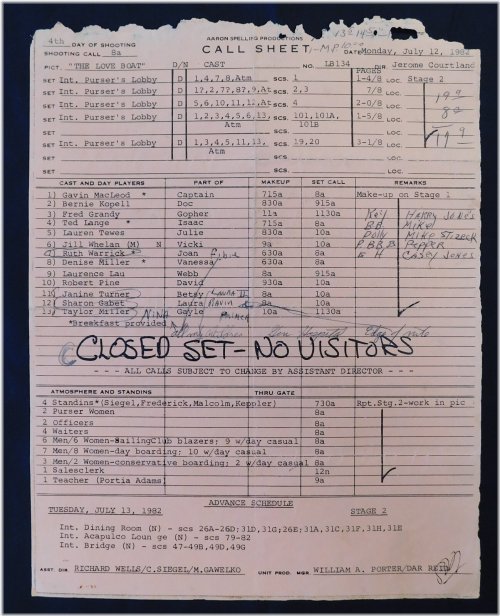 AARON SPELLING PRODUCTIONS
4th DAY OF SHOOTING
SHOOTING CALL 8a
CALL SHEET
DATE Monday, July 12, 1982
PICT. "THE LOVE BOAT" D/N CAST NO. LB134 DIR. Jerome Courtland
PAGES
SET Int. Purser's Lobby D 1,4,7,8,Atm SCS. 1 1-4/8 LOC. Stage 2
SET Int. Purser's Lobby D SCS. 2,3 7/8 LOC.
SET Int. Purser's Lobby D 5,6,10,11,12,At SCS. 4 2-0/8 LOC.
SET Int. Purser's Lobby D 1,2,3,4,5,6,13, Atm SCS. 101,101A, 101B 1-5/8 LOC.
SET Int. Purser's Lobby D 1,3,4,5,11,13, Atm SCS. 19,20 3-1/8 LOC.
SET SCS. LOC.
SET SCS. LOC.
CAST AND DAY PLAYERS PART OF MAKEUP SET CALL REMARKS
1) Gavin MacLeod * Captain 715a 8a Make-up on Stage 1
2) Bernie Kopell Doc 830a 915a
3) Fred Grandy Gopher 11a 1130a Key HARRY JONES
4) Ted Lange * Isaac 715a 8a BB MIKE
5) Lauren Tewes Julie 830a 10a DOLLY MIKE
6) Jill Whelan (M) N Vicki 9a 10a PEPPER
7) Ruth Warrick * Joan 630a 8a CASEY JONES
8) Denise Miller * Vanessa 630a 8a
9) Laurence Lau Webb 8a 915a
10) Robert Pine David 930a 10a
11) Janine Turner Betsy LAURA 8a 10a
12) Sharon Gabet Laura 8a 10a
13) Taylor Miller Gayle 10a 1130a
*Breakfast provided NINA
CLOSED SET - NO VISITORS
- - - ALL CALLS SUBJECT TO CHANGE BY ASSISTANT DIRECTOR - - -
ATMOSPHERE AND STANDINS THRU GATE
4 Standins*(Siegel,Frederick,Malcolm,Keppler) 730a Rpt.Stg.2-work in pic
2 Purser Women 8a
2 Officers 8a
4 Waiters 8a
6 Men/6 Women-SailingClub blazers; 9 w/day casual 8a
7 Men/8 Women-day boarding; 10 w/day casual 8a
3 Men/2 Women-conservative boarding; 2 w/day casual 8a
1 Salesclerk 12n
1 Teacher (Portia Adams) 9a
ADVANCE SCHEDULE
TUESDAY, JULY 13, 1982 STAGE 2
Int. Dining Room (N) - scs 26A-26D;31D,31G;26E;31A,31C,31F,31H,31E
Int. Acapulco Lounge (N) - scs 79-82
Int. Bridge (N) - scs 47-49B,49D,49G
ASST. DIR. RICHARD WELLS/C.SIEGEL/M.GAWELKO UNIT PROD. MGR WILLIAM A. PORTER/DAR REID